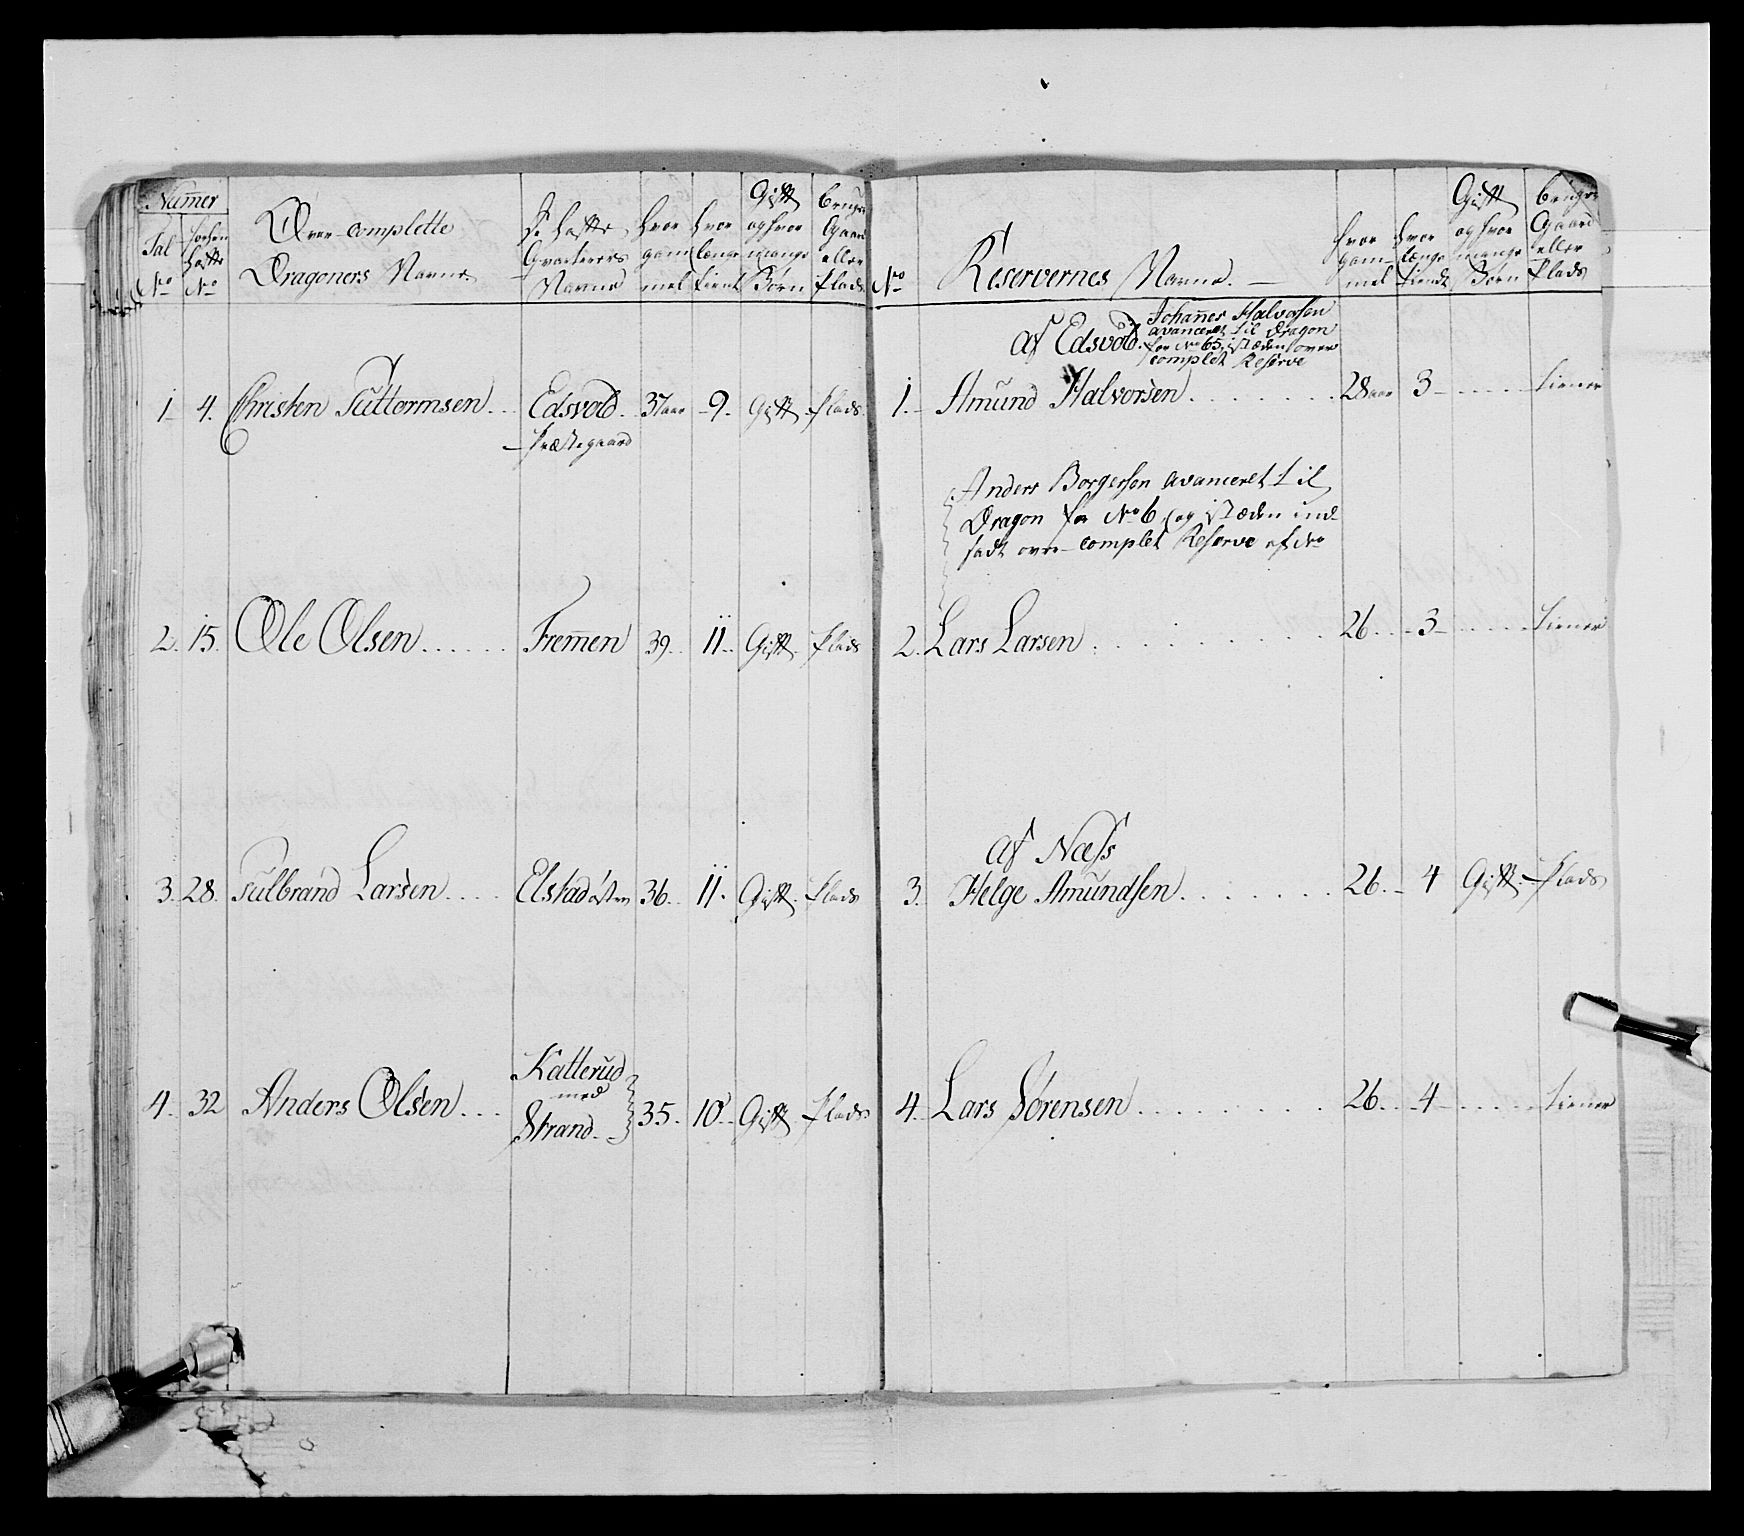 Numer
Tal No
forhen hafte No
Over-complette
Dragoners Navne
De hafte Qvarterers Navne
hvor gammel
hvor længe tient
Gift og hvor mange Børn
bruger Gaard eller Plads
No
Reservernes Navne.
hvor gammel
hvor længe tiendt
Gift og hvor mange Børn
bruger Gaard eller Plads
1 4. Christen Guttormsen Edsvold 37 aar 9. Gift. Plads.
Præstegaard
2. 15. Ole Olsen Fremen 39. 11. Gift. Plads
3. 28. Gulbrand Larsen Elstad østen 36. 11. Gift. Plads
Katterud
med
4. 32 Anders Olsen 35. 10. Gift. Plads
Strand.
Af Edsvold.
Johannes Halvorsen
avanceret til Dragon
for No 65, istæden over
complet Reserve
1. Amund Halvorsen 28 aar 3 tiener
Anders Borgersen avanceret til
Dragon for No 6, og istæden ind
sadt over-complet Reserve af No
2. Lars Larsen 26 3 tiener
Af Næss
3. Helge Amundsen 26. 4 Gift. Plads
4. Lars Sørensen 26. 4 tiener